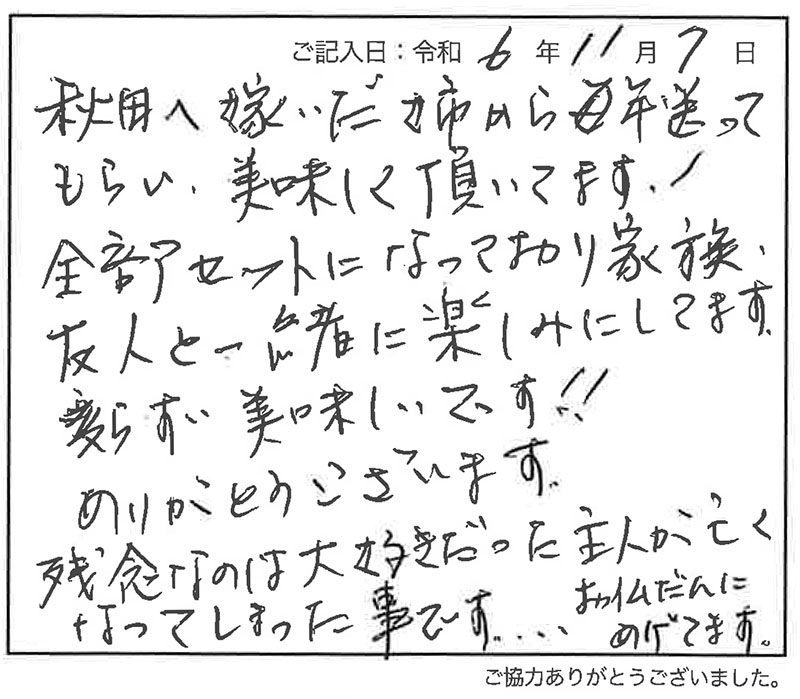 ご記入日：令和 6 年 11 月 7 日
秋田へ嫁いだ姉から毎年送って
もらい、美味しく頂いてます！
全部アセットになっており家族、
友人と一緒に楽しみにしてます。
変らず美味しいです!!
ありがとうございます。
残念なのは大好きだった主人が亡く
なってしまった事です....
お仏だんに
あげてます。
ご協力ありがとうございました。